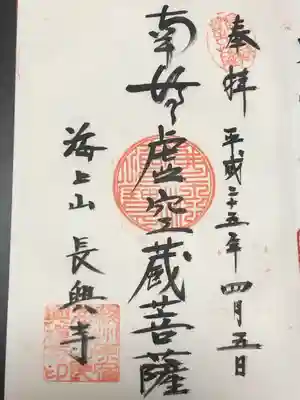 奉拝 平成二十五年四月五日
南無虚空蔵菩薩
海上山 長興寺